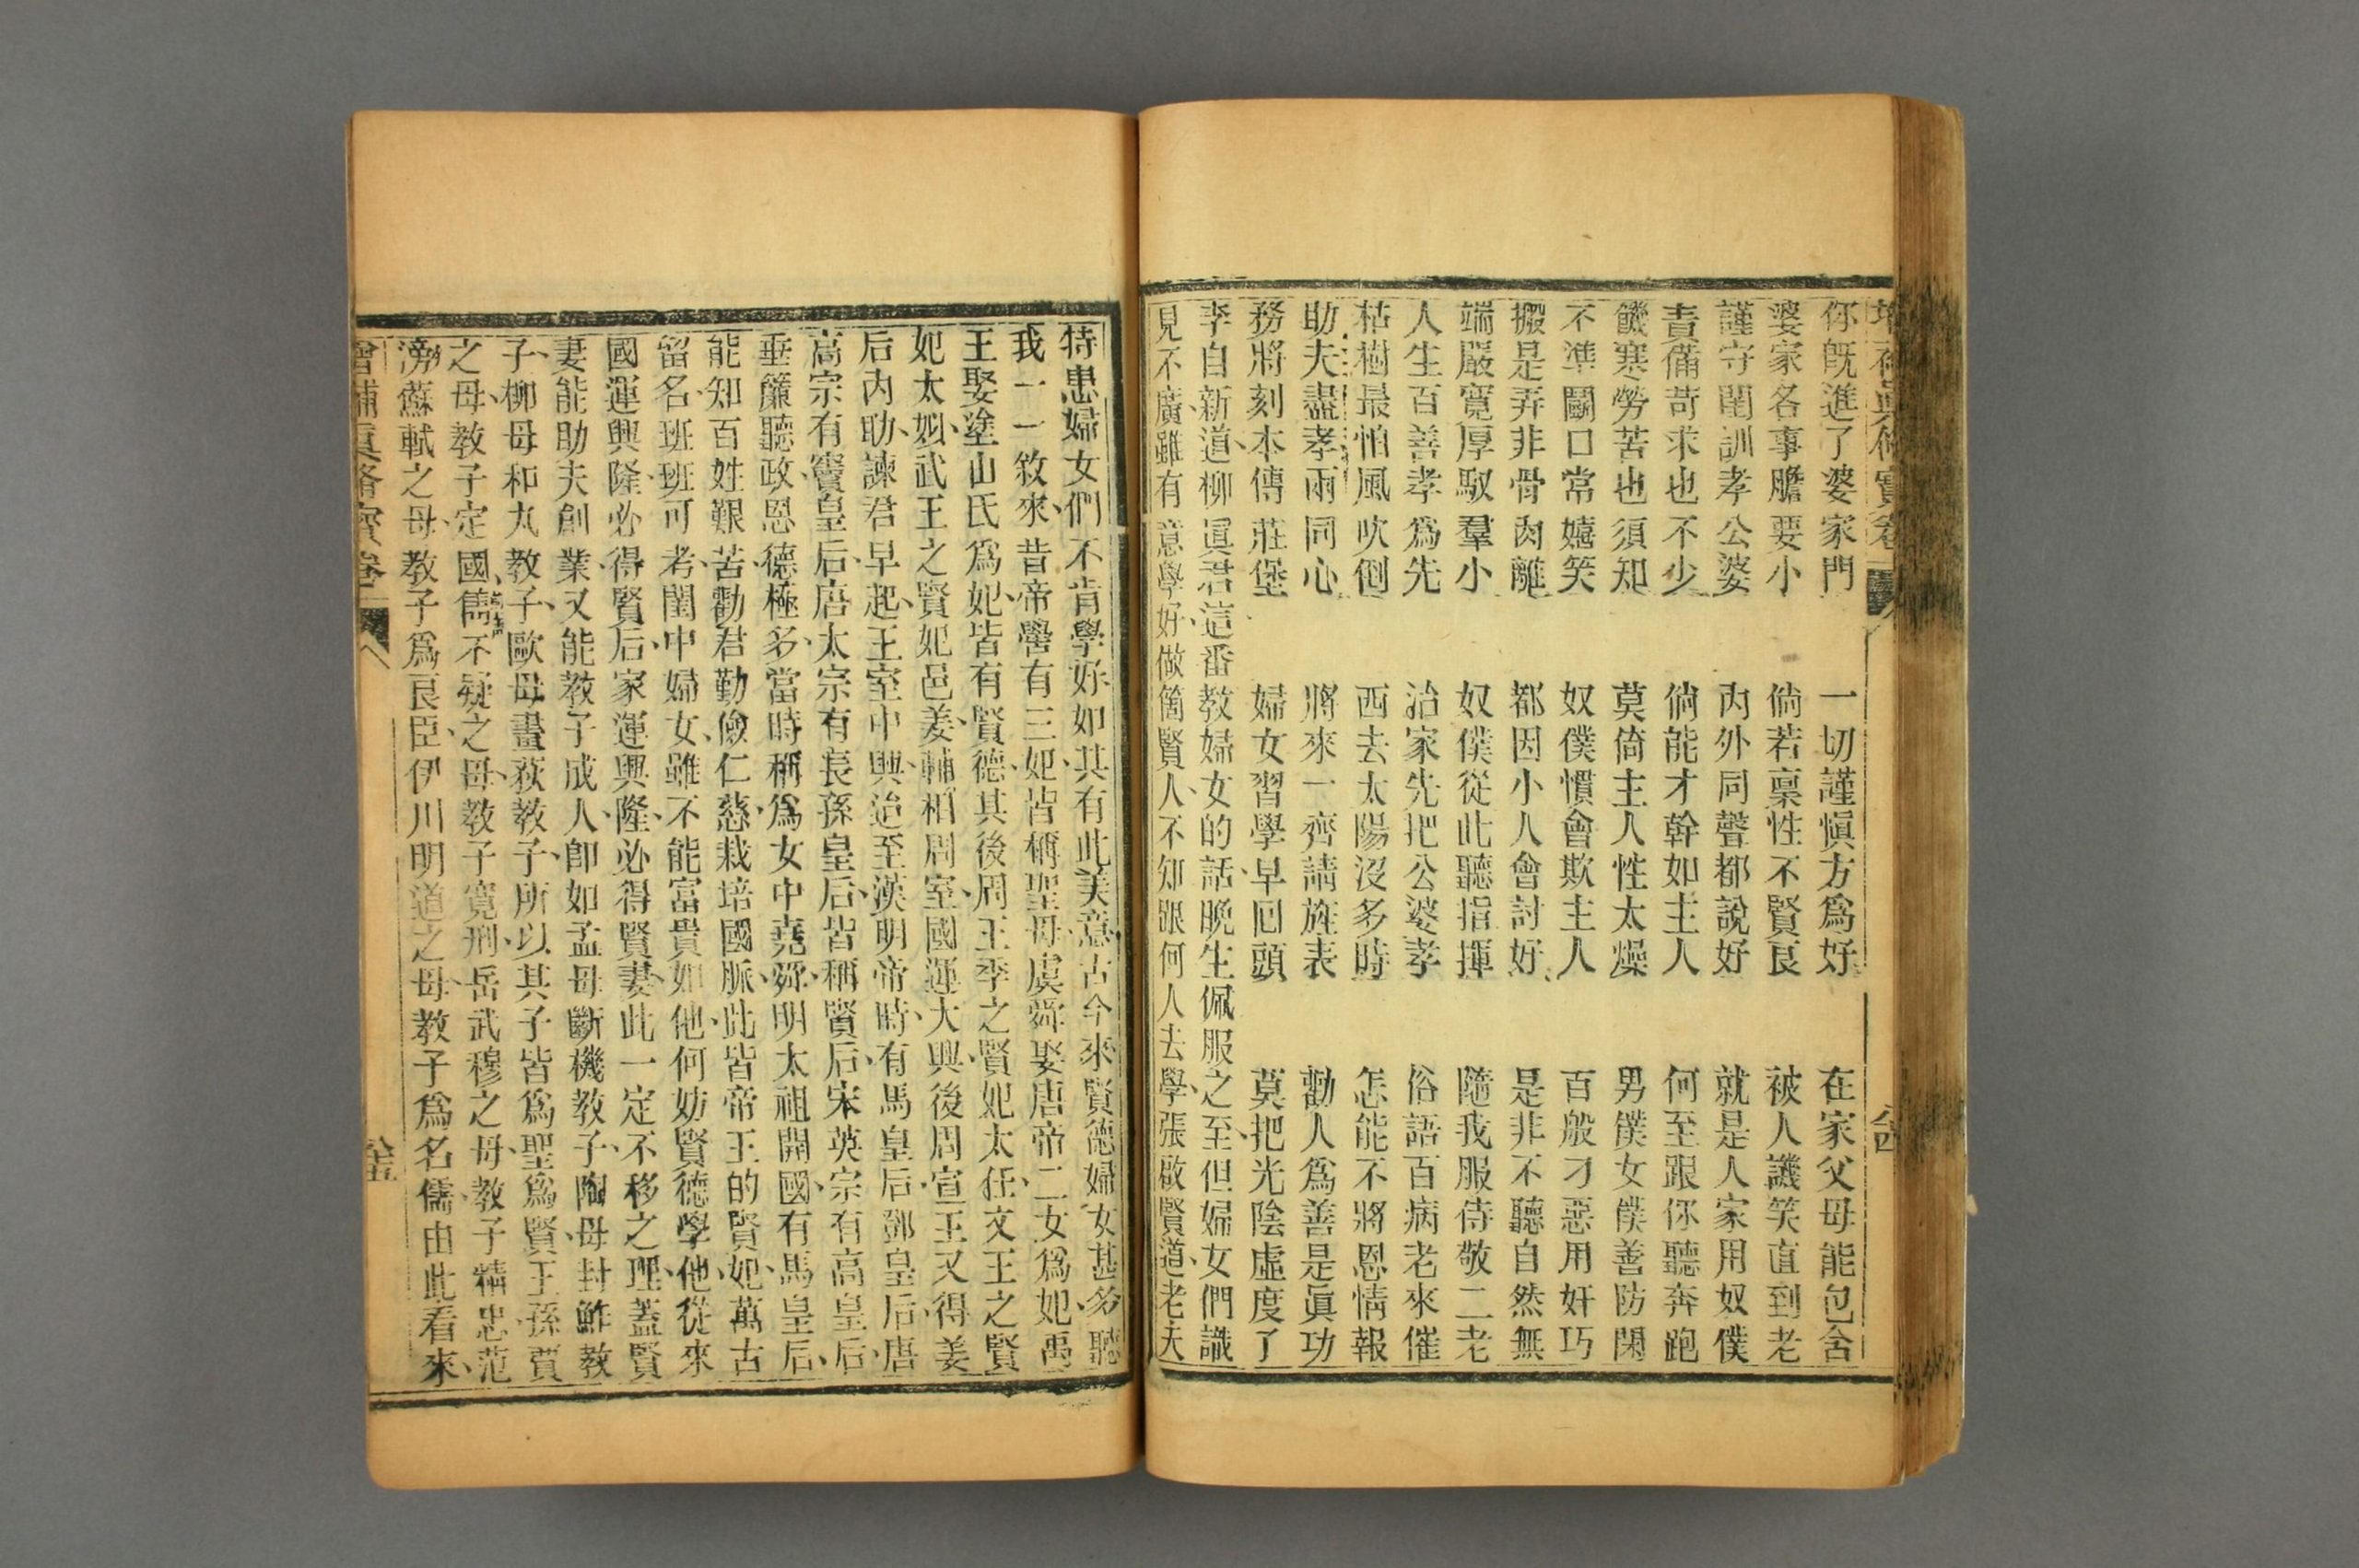 增補真修寶卷 八四
你旣進了婆家門 一切謹愼方爲好 在家父母能包含
婆家各事膽要小 倘若稟性不賢良 被人譏笑直到老
謹守閨訓孝公婆 內外同聲都說好 就是人家用奴僕
責備苛求也不少 倘能才幹如主人 何至跟你聽奔跑
饑寒勞苦也須知 莫倚主人性太燥 男僕女僕善防閑
不準鬬口常嬉笑 奴僕慣會欺主人 百般刁惡用奸巧
搬是弄非骨肉離 都因小人會討好 是非不聽自然無
端嚴寬厚馭羣小 奴僕從此聽指揮 隨我服侍敬二老
人生百善孝爲先 治家先把公婆孝 俗語百病老來催
枯樹最怕風吹倒 西去太陽沒多時 怎能不將恩情報
助夫盡孝兩同心 將來一齊請旌表 勸人爲善是眞功
務將刻本傳莊堡 婦女習學早回頭 莫把光陰虛度了
李自新道柳眞君這番教婦女的話晩生佩服之至但婦女們識
見不廣雖有意學好做箇賢人不知跟何人去學張啟賢道老夫
特患婦女們不肯學好如其有此美意古今來賢德婦女甚多聽
我一一敘來昔帝嚳有三妃皆稱聖母虞舜娶唐帝二女爲妃禹
王娶塗山氏爲妃皆有賢德其後周王季之賢妃太任文王之賢
妃太姒武王之賢妃邑姜輔相周室國運大興後周宣王又得姜
后內助諫君早起王室中興迨至漢明帝時有馬皇后鄧皇后唐
高宗有竇皇后唐太宗有長孫皇后皆稱賢后宋英宗有高皇后
垂簾聽政恩德極多當時稱爲女中堯舜明太祖開國有馬皇后
能知百姓艱苦勸君勤儉仁慈栽培國脈此皆帝王的賢妃萬古
留名班班可考閨中婦女雖不能富貴如他何妨賢德學他從來
國運興隆必得賢后家運興隆必得賢妻此一定不移之理蓋賢
妻能助夫創業又能教子成人卽如孟母斷機教子陶母封鮓教
子柳母和丸教子歐母畫荻教子所以其子皆爲聖爲賢王孫賈
之母教子定國雋不疑之母教子寬刑岳武穆之母教子精忠范
滂蘇軾之母教子爲良臣伊川明道之母教子爲名儒由此看來
增補真修寶卷 八十五